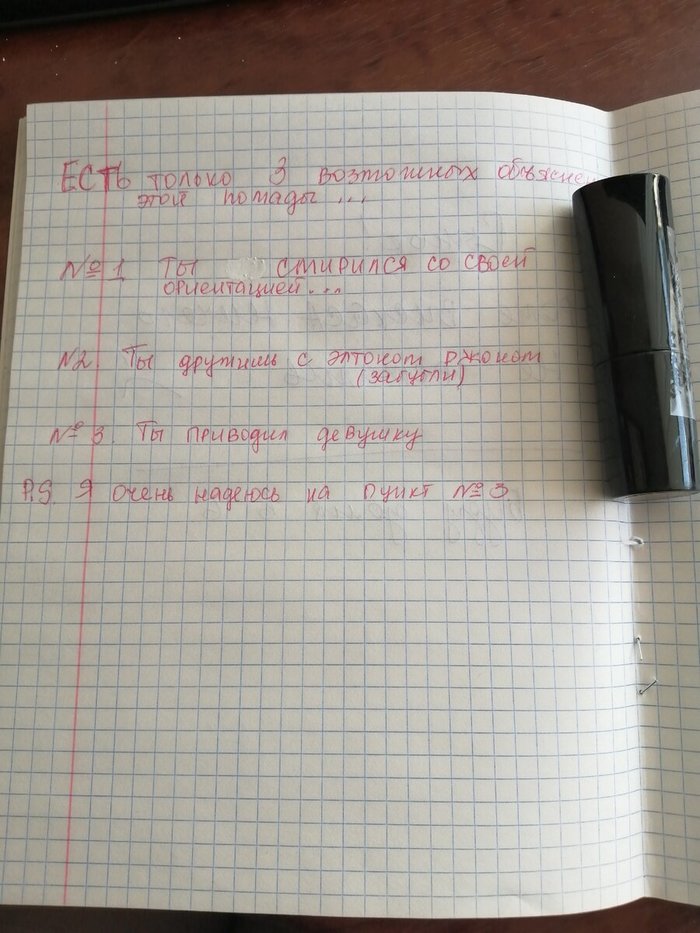 ЕСТЬ только 3 возможных объяснен
этой помады ...
№ 1 ТЫ СМИРИЛСЯ СО СВОЕЙ
ОРИЕНТАЦИЕЙ...
N2. Ты дружишь с элтоном джоном
(загугли)
№ 3. Ты приводил девушку
P.S Я очень надеюсь на пункт № 3.